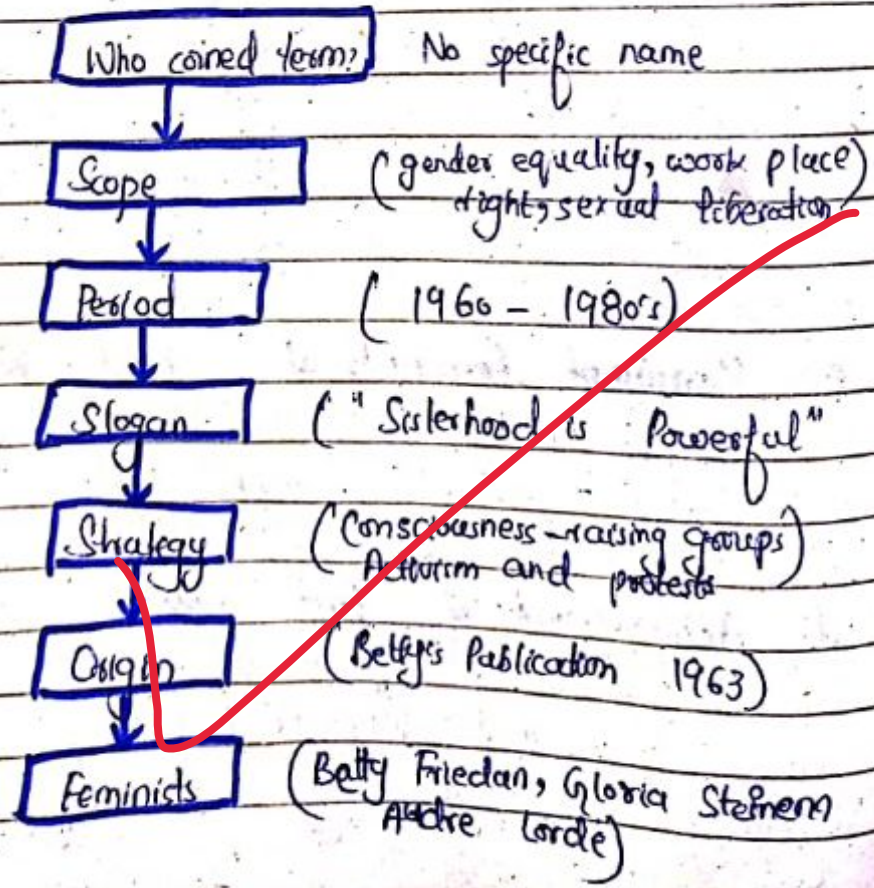 Who coined term? No specific name
Scope (gender equality, work place)
right, sexual liberation
Period (1960 - 1980's)
Slogan ("Sisterhood is Powerful"
Strategy (Consciousness-raising groups)
Activism and protests
Origin (Betty's Publication 1963)
Feminists (Betty Friedan, Gloria Steinem
Audre Lorde)